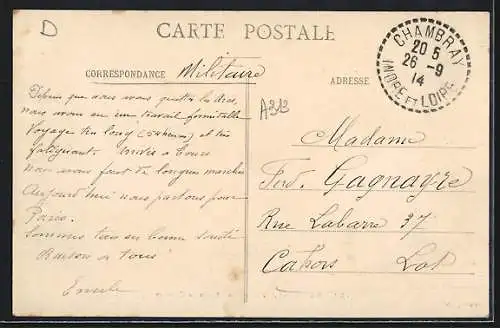 D
CARTE POSTALE
CORRESPONDANCE Militaire
ADRESSE
CHAMBRAY
20 5
26 -9
14
INDRE ET LOIRE
A313
Depuis que nous avons quitté
nous avons eu un travail formidable
Voyage très long (54 heures) et très
fatiguant. arrivés à Tours
nous avons fait de longues marches
Aujourd'hui nous partons pour
Paris.
Sommes tous en bonne santé
Baisers à tous
Madame
Ferd. Gagnayre
Rue Labarre 37
Cahors Lot